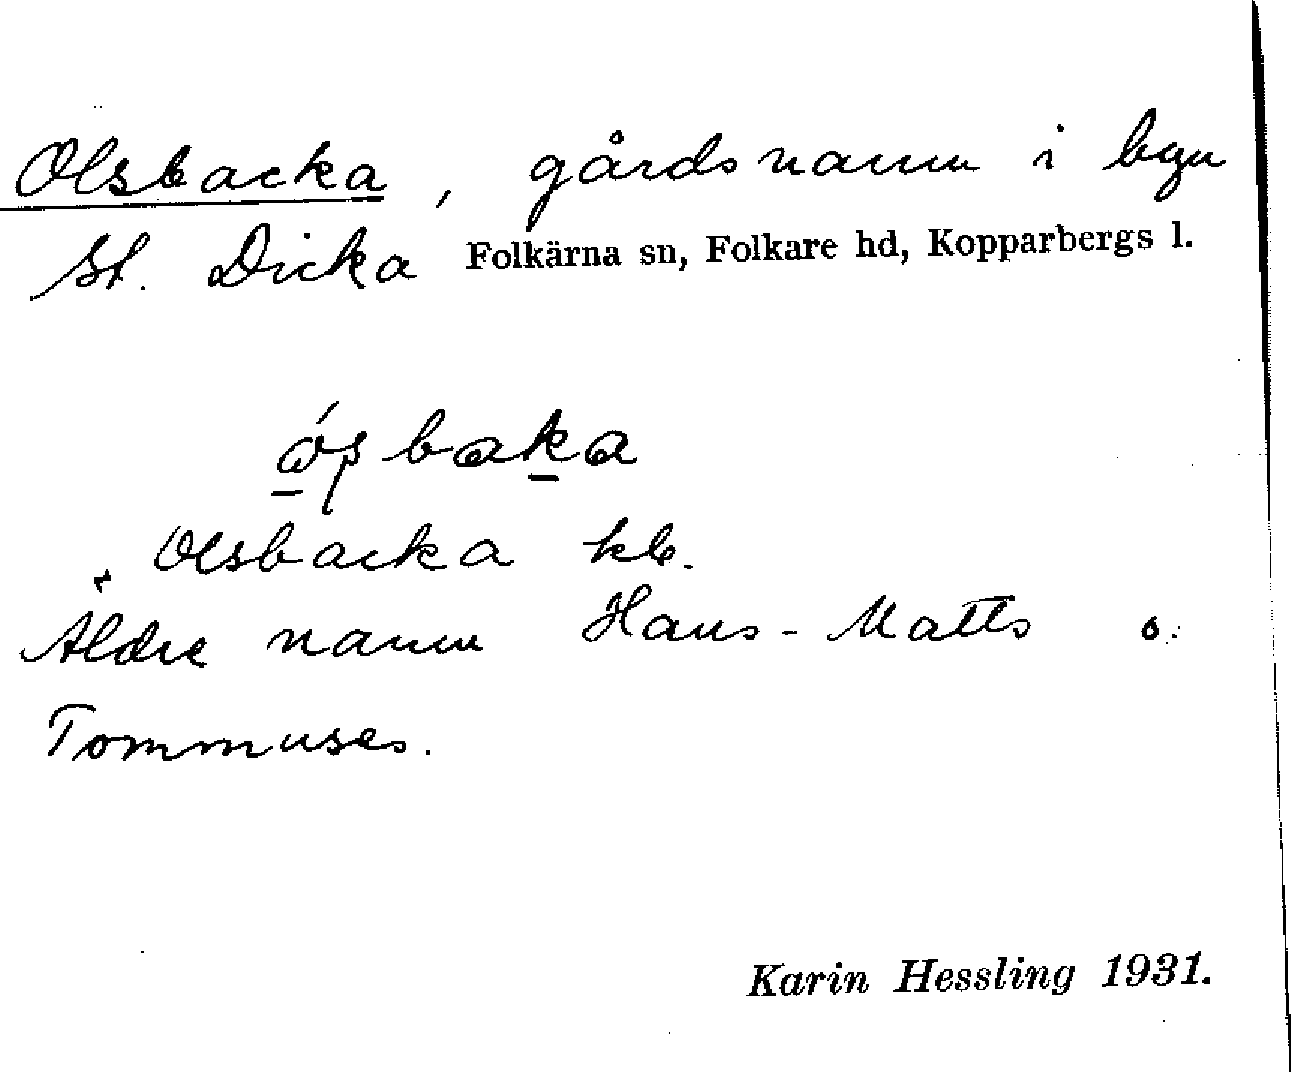 Olsbacka, gårdsnamn i byn
St. Dicka Folkärna sn, Folkare hd, Kopparbergs l.
ósbaka
Olsbacka kb.
Äldre namn Hans-Matts o.
Tommuses.
Karin Hessling 1931.